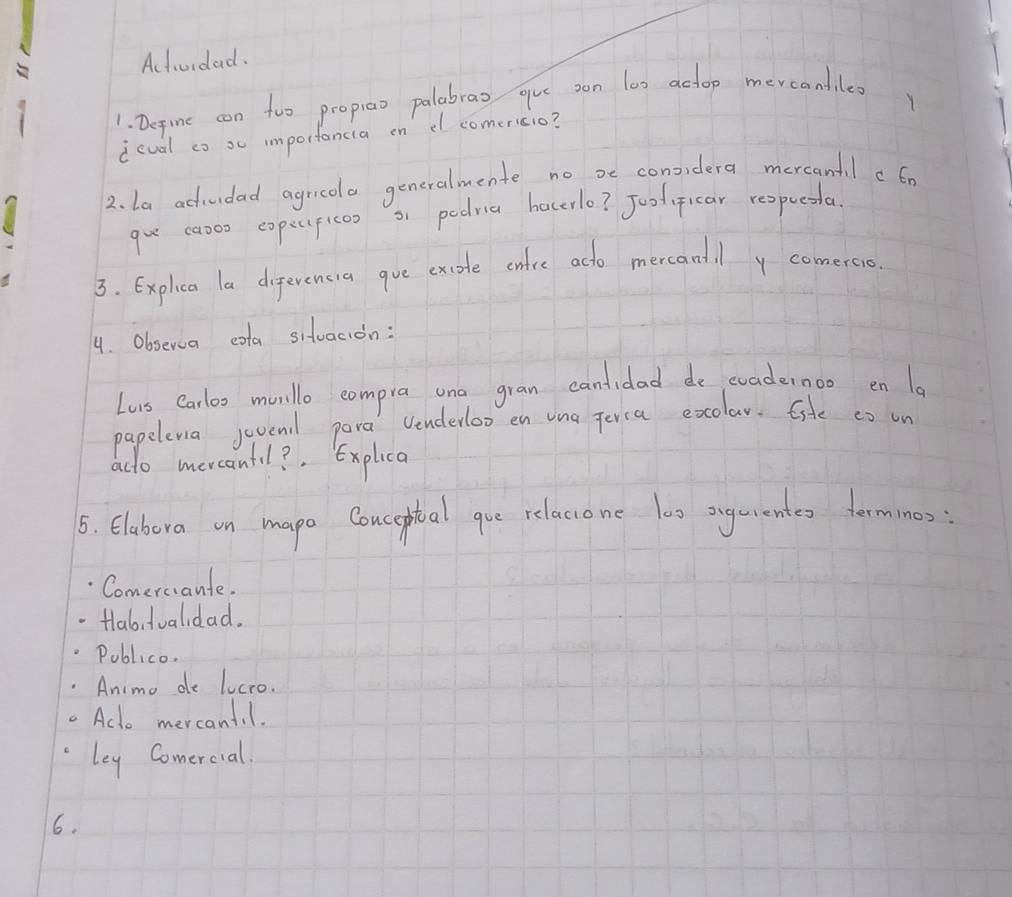 Actividad.
1. Define con tus propias palabras que son los actos mercantiles y
¿cual es su importancia en el comericio?
2. La actividad agricola generalmente no se considera mercantil ¿ En
que casos especificos si podria hacerlo? Justificar respuesta.
3. Explica la diferencia que existe entre acto mercantil y comercio.
4. Observa esta situación:
Luis Carlos murillo compra una gran cantidad de cuadernos en la
papeleria juvenil para Venderlos en una feria escolar. Este es un
acto mercantil?. Explica
5. Elabora un mapa Conceptual que relacione los siguientes terminos:
• Comerciante.
• Habitualidad.
• Publico.
• Animo de lucro.
• Acto mercantil.
• Ley Comercial.
6.